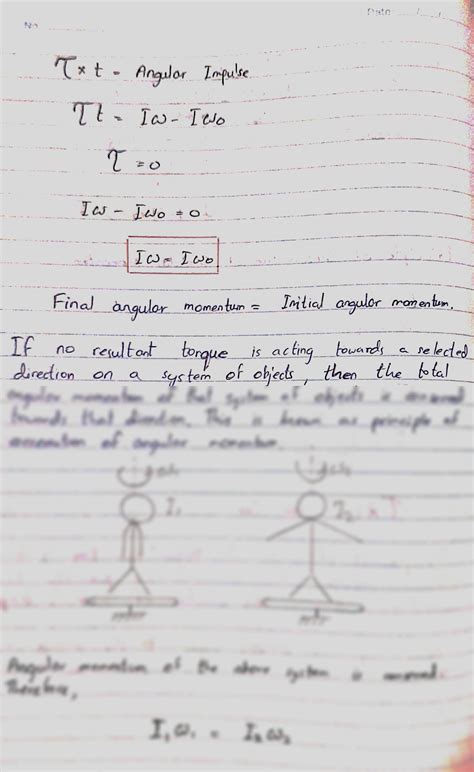 No
Date: ..../..../....
τ × t = Angular Impulse
τt = Iω - Iω₀
τ = 0
Iω - Iω₀ = 0
Iω = Iω₀
Final angular momentum = Initial angular momentum.
If no resultant torque is acting towards a selected
direction on a system of objects, then the total
angular momentum of that system of objects is conserved
towards that direction. This is known as principle of
conservation of angular momentum.
ω₁ ω₂
I₁ I₂
Angular momentum of the above system is conserved.
Therefore,
I₁ω₁ = I₂ω₂